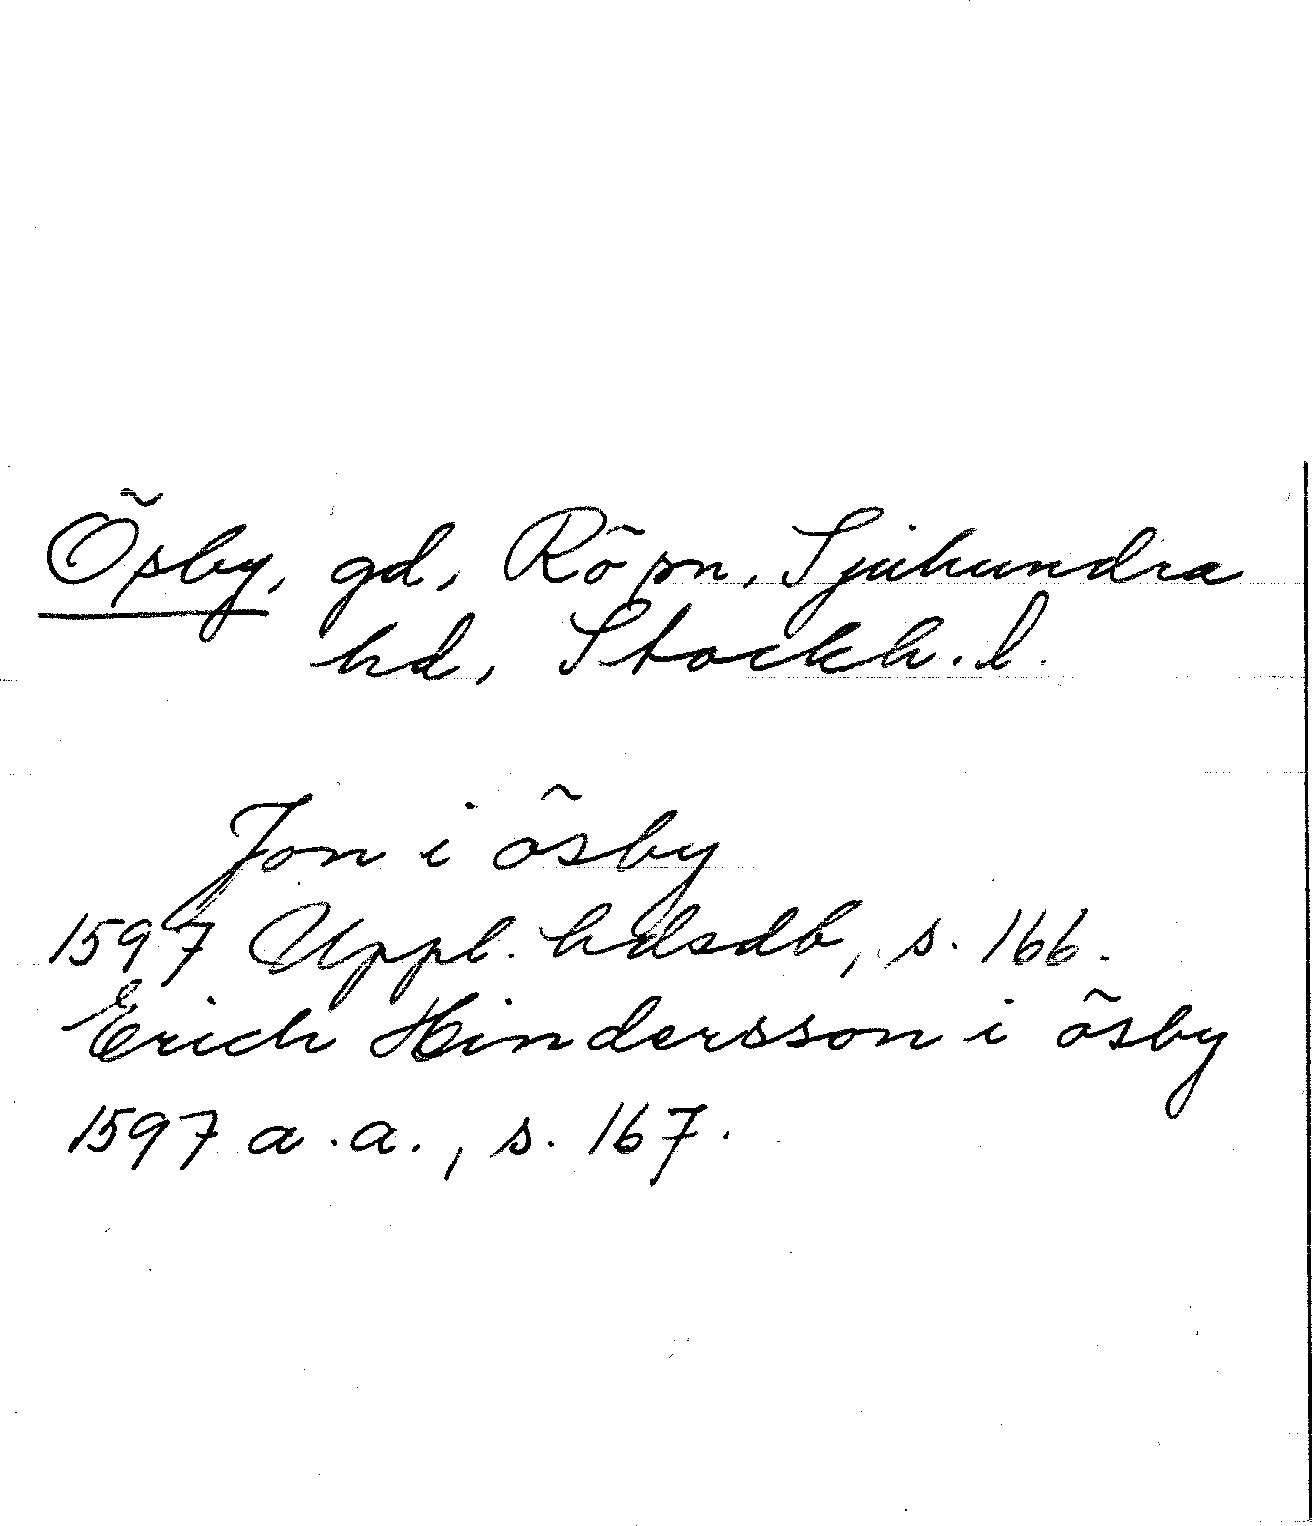 Ösby, gd, Rö sn, Sjuhundra
hd, Stockh. l.
Jon i ösby
1597 Uppl. hdsdb, s. 166.
Erich Hindersson i ösby
1597 a.a., s. 167.